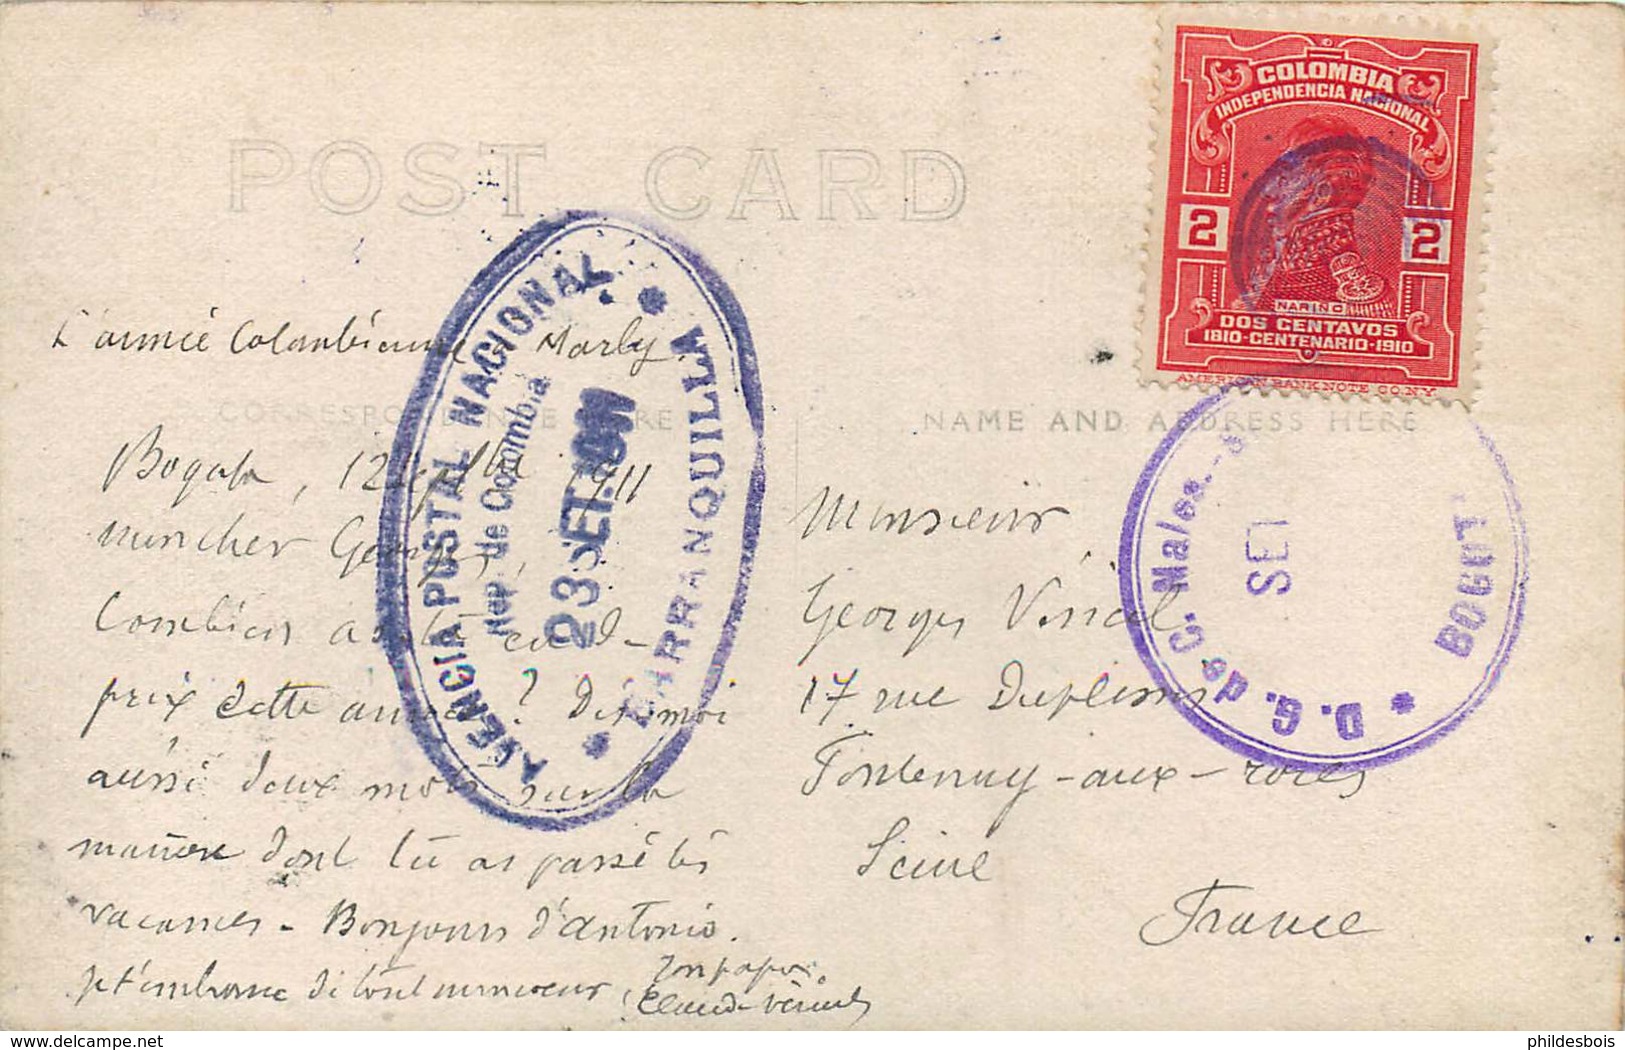 POST CARD
COLOMBIA
INDEPENDENCIA NACIONAL
2 2
NARIÑO
DOS CENTAVOS
1810-CENTENARIO-1910
AMERICAN BANK NOTE CO. N.Y.
L'armée Colombienne à Marly.
CORRESPONDENCE HERE
NAME AND ADDRESS HERE
AGENCIA POSTAL NACIONAL
Rep. de Colombia
23 SET.
BARRANQUILLA
D. G. de C. Males.
SET
BOGOT
Bogota, 12 septbre 1911
mon cher Georges,
Combien as tu eu de
prix cette année? Dis moi
aussi deux mots sur la
manière dont tu as passé tes
vacances - Bonjours d'Antonio.
je t'embrasse de tout mon coeur,
Ton papa.
Claud
Monsieur
Georges
17 rue
Fontenay-aux-roses
Seine
France
phildesbois